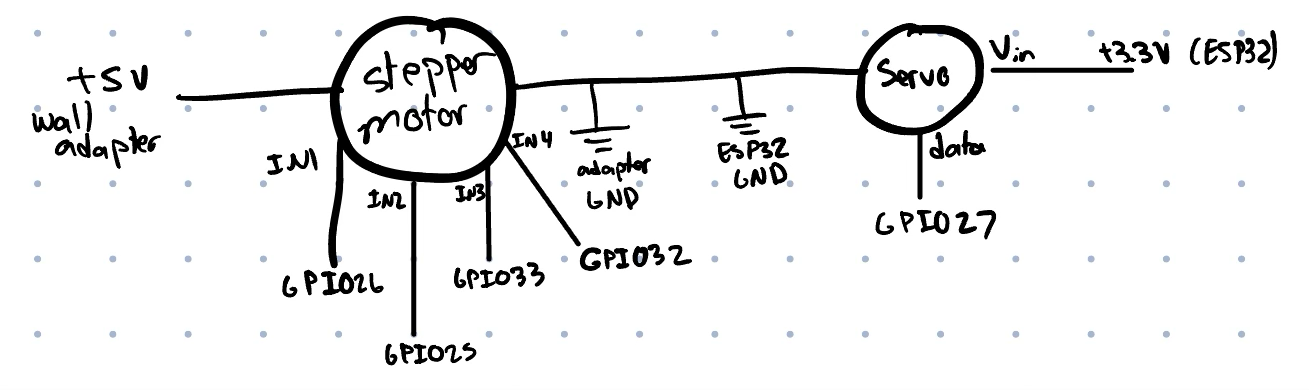 +5V
wall
adapter
stepper
motor
IN1
IN2
IN3
IN4
GPIO26
GPIO25
GPIO33
GPIO32
adapter
GND
ESP32
GND
Servo
Vin
+3.3V (ESP32)
data
GPIO27